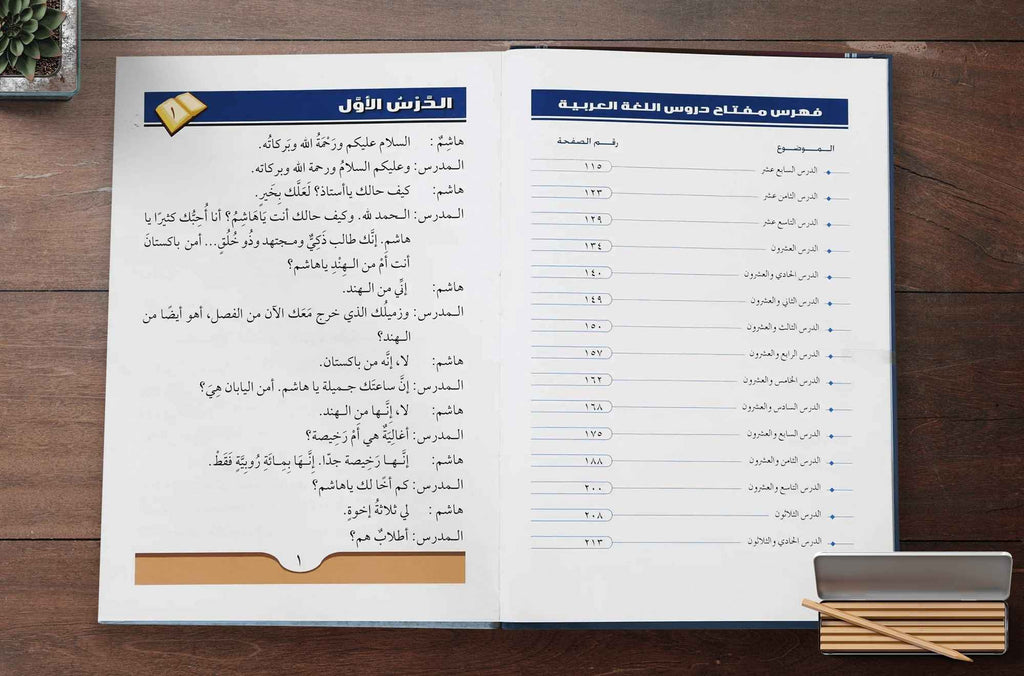 فهرس مفتاح دروس اللغة العربية
المـــوضـــوع رقــم الصفحة
الدرس السابع عشر ١١٥
الدرس الثامن عشر ١٢٣
الدرس التاسع عشر ١٢٩
الدرس العشرون ١٣٤
الدرس الحادي والعشرون ١٤٠
الدرس الثاني والعشرون ١٤٩
الدرس الثالث والعشرون ١٥٠
الدرس الرابع والعشرون ١٥٧
الدرس الخامس والعشرون ١٦٢
الدرس السادس والعشرون ١٦٨
الدرس السابع والعشرون ١٧٥
الدرس الثامن والعشرون ١٨٨
الدرس التاسع والعشرون ٢٠٠
الدرس الثلاثون ٢٠٨
الدرس الحادي والثلاثون ٢١٣
الدَّرْسُ الأَوَّل ١
هاشِمٌ: السلام عليكم ورَحْمَةُ الله وبَركاتُه.
الـمدرس: وعليكم السلامُ ورحمة الله وبركاته.
هاشم: كيف حالك ياأستاذ؟ لَعَلَّك بِخَيرٍ.
الـمدرس: الـحمد لله. وكيف حالك أنت يَاهَاشِمُ؟ أنا أُحِبُّك كثيرًا يا
هاشم. إنَّك طالب ذَكِيٌّ ومـجتهد وذُو خُلُقٍ... أمن باكستانَ
أنت أَمْ من الـهِنْدِ ياهاشم؟
هاشم: إنّي من الـهند.
الـمدرس: وزميلُك الذي خرج مَعَك الآن من الفصل، أهو أيضًا من
الـهند؟
هاشم: لا، إنَّه من باكستان.
الـمدرس: إنَّ ساعتَك جـميلة يا هاشم. أمن اليابان هِيَ؟
هاشم: لا، إنَّـها من الـهند.
الـمدرس: أغالِيَةٌ هي أَمْ رَخِيصة؟
هاشم: إنَّـهـا رَخِيصة جدّا. إِنَّـهَا بِمِـائَةِ رُوبِيَّةٍ فَقَطْ.
الـمدرس: كم أخًا لك ياهاشم؟
هاشم: لي ثلاثةُ إخوةٍ.
الـمدرس: أطلابٌ هم؟
١